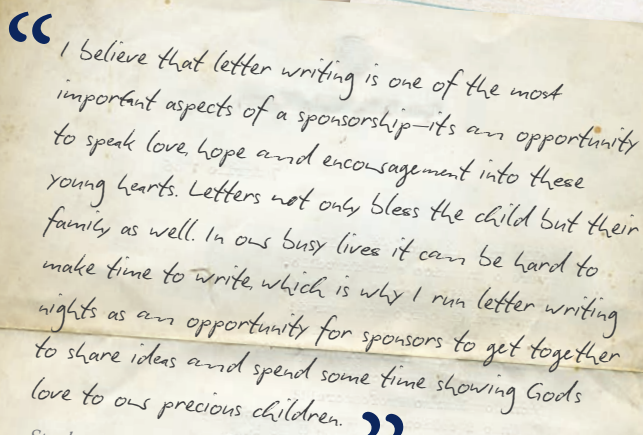 “
I believe that letter writing is one of the most
important aspects of a sponsorship–its an opportunity
to speak love, hope and encouragement into these
young hearts. Letters not only bless the child but their
family as well. In our busy lives it can be hard to
make time to write, which is why I run letter writing
nights as an opportunity for sponsors to get together
to share ideas and spend some time showing Gods
love to our precious children.
”